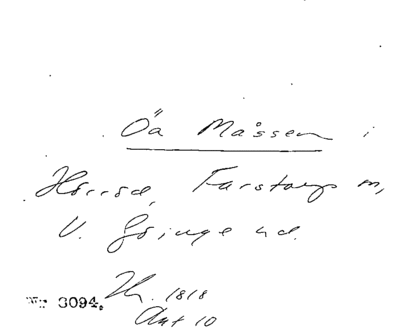 Öa Måssen i
Hörröd, Farstorps sn,
V. Göinge hd.
No 3094. Hr. 1818
Akt 10